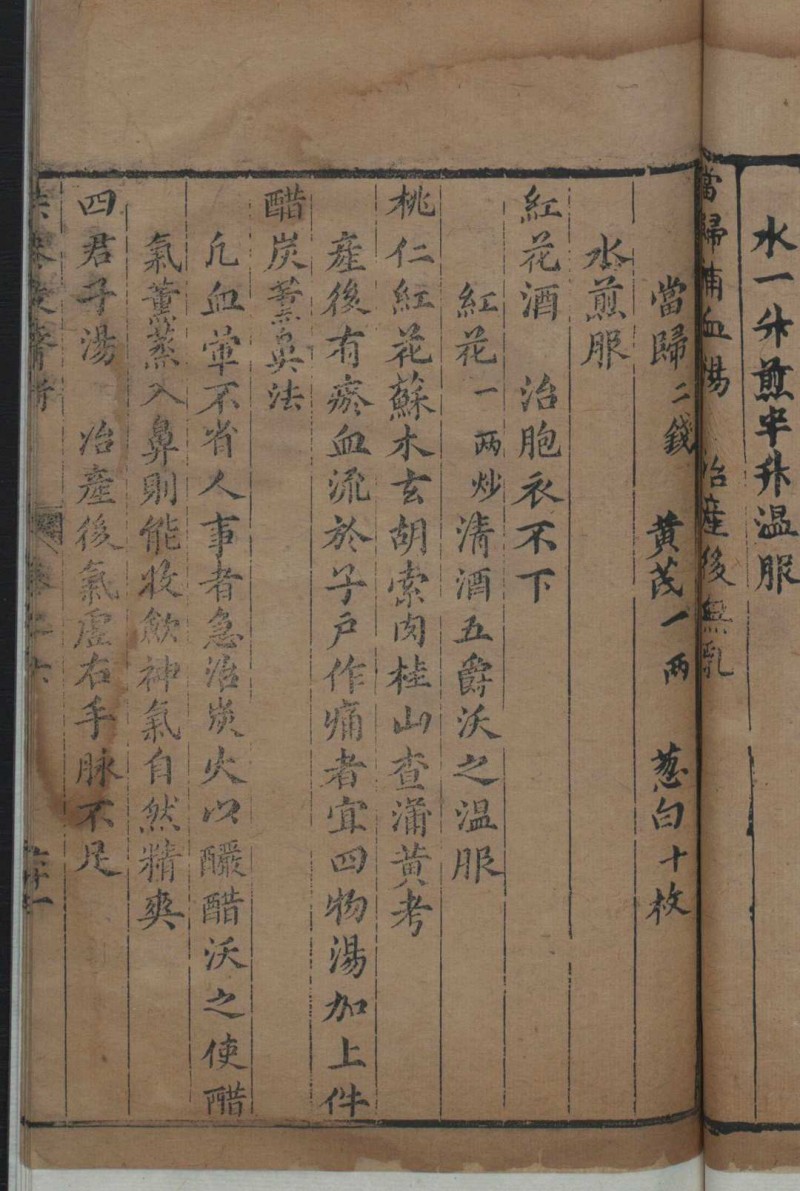 水一升煎半升温服
當歸補血湯　治産後無乳
當歸二錢　黄芪一兩　葱白十枚
水煎服
紅花酒　治胞衣不下
紅花一兩炒清酒五爵沃之温服
桃仁紅花蘇木玄胡索肉桂山查蒲黄考
産後有瘀血流於子戶作痛者宜四物湯加上件
醋炭薰鼻法
凡血暈不省人事者急治炭火以釅醋沃之使醋
氣薰蒸入鼻則能收歛神氣自然精爽
四君子湯　治産後氣虛右手脉不足